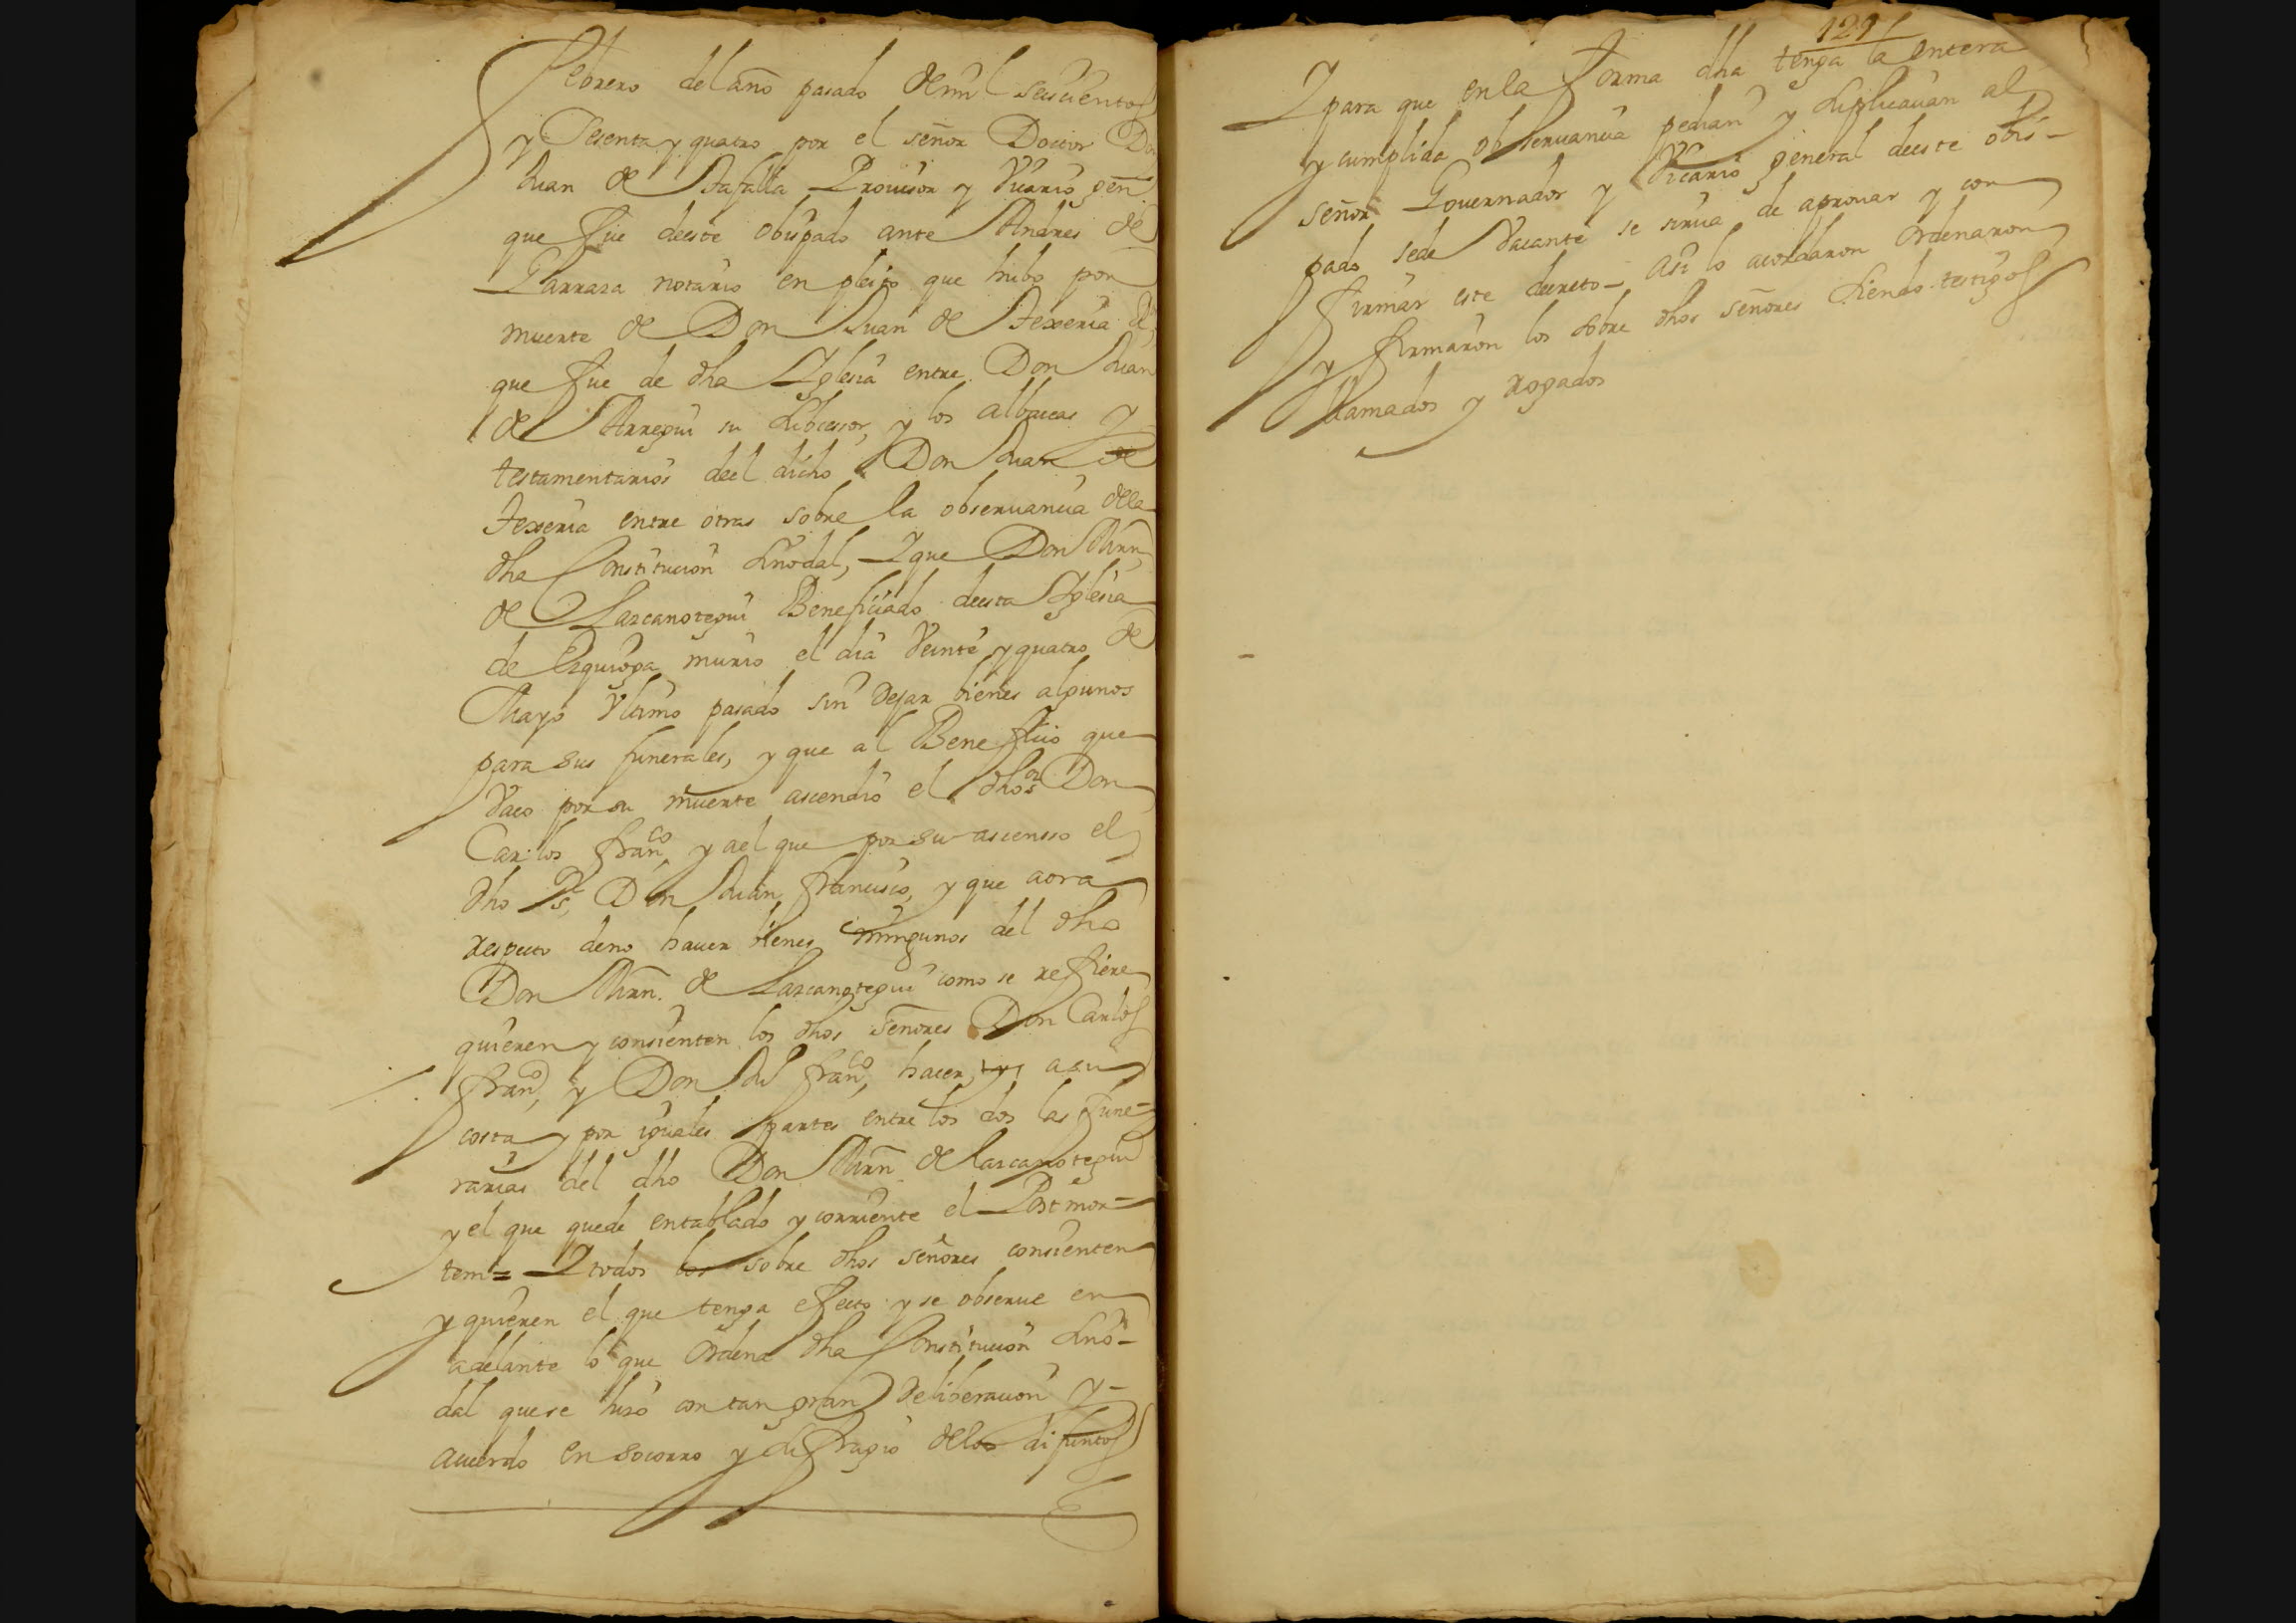 Febrero del año pasado de mil seiscientos
y sesenta y quatro por el señor Doctor Don
Juan de Tafalla Prouisor y Vicario gen
que fue deeste obispado ante Andres de
Larraza notario en pleito que hubo por
muerte de Don Juan de Texeria
que fue de dha Iglesia entre Don Juan
de Arregui su subcessor, y los albaceas y
testamentarios deel dicho Don Juan de
Texeria entre otras sobre la obseruancia dela
dha Constitucion sinodal, Y que Don Mrn
de Lazcanotegui Beneficiado deesta Iglesia
de Ezquioga murio el dia Veinte y quatro de
Mayo Vltimo pasado sin dejar bienes algunos
para sus funerales, y que al Beneficio que
Vaco por su muerte ascendio el dho sor Don
Carlos franco, y ael que por su ascenso el
dho Sr Don Juan francisco, y que aora
respecto deno hauer bienes ningunos del dho
Don Mrn. de Lazcanotegui como se refiere
quieren y consienten los dhos señores Don Carlos
franco, y Don Ju franco, hacer asu
costa y por iguales partes entre los dos las fune-
rarias del dho Don Mrn de lazcanotegui
y el que quede entablado y corriente el Postmor-
tem= Y todos los sobre dhos señores consienten
y quieren el que tenga efecto y se obserue en
adelante lo que ordena dha Constitucion sino-
dal que se hizo con tan gran deliberacion y-
acuerdo en socorro y sufragio delos difuntos
121
Y para que enla forma dha tenga la entera
y cumplida obseruancia pedian y suplicauan al
señor Gouernador y Vicario general deeste obis-
pado sede Vacante se sirua de aprouar y con
firmar este decreto- asi lo acordaron ordenaron
y firmaron los sobre dhos señores siendo testigos
llamados y rogados